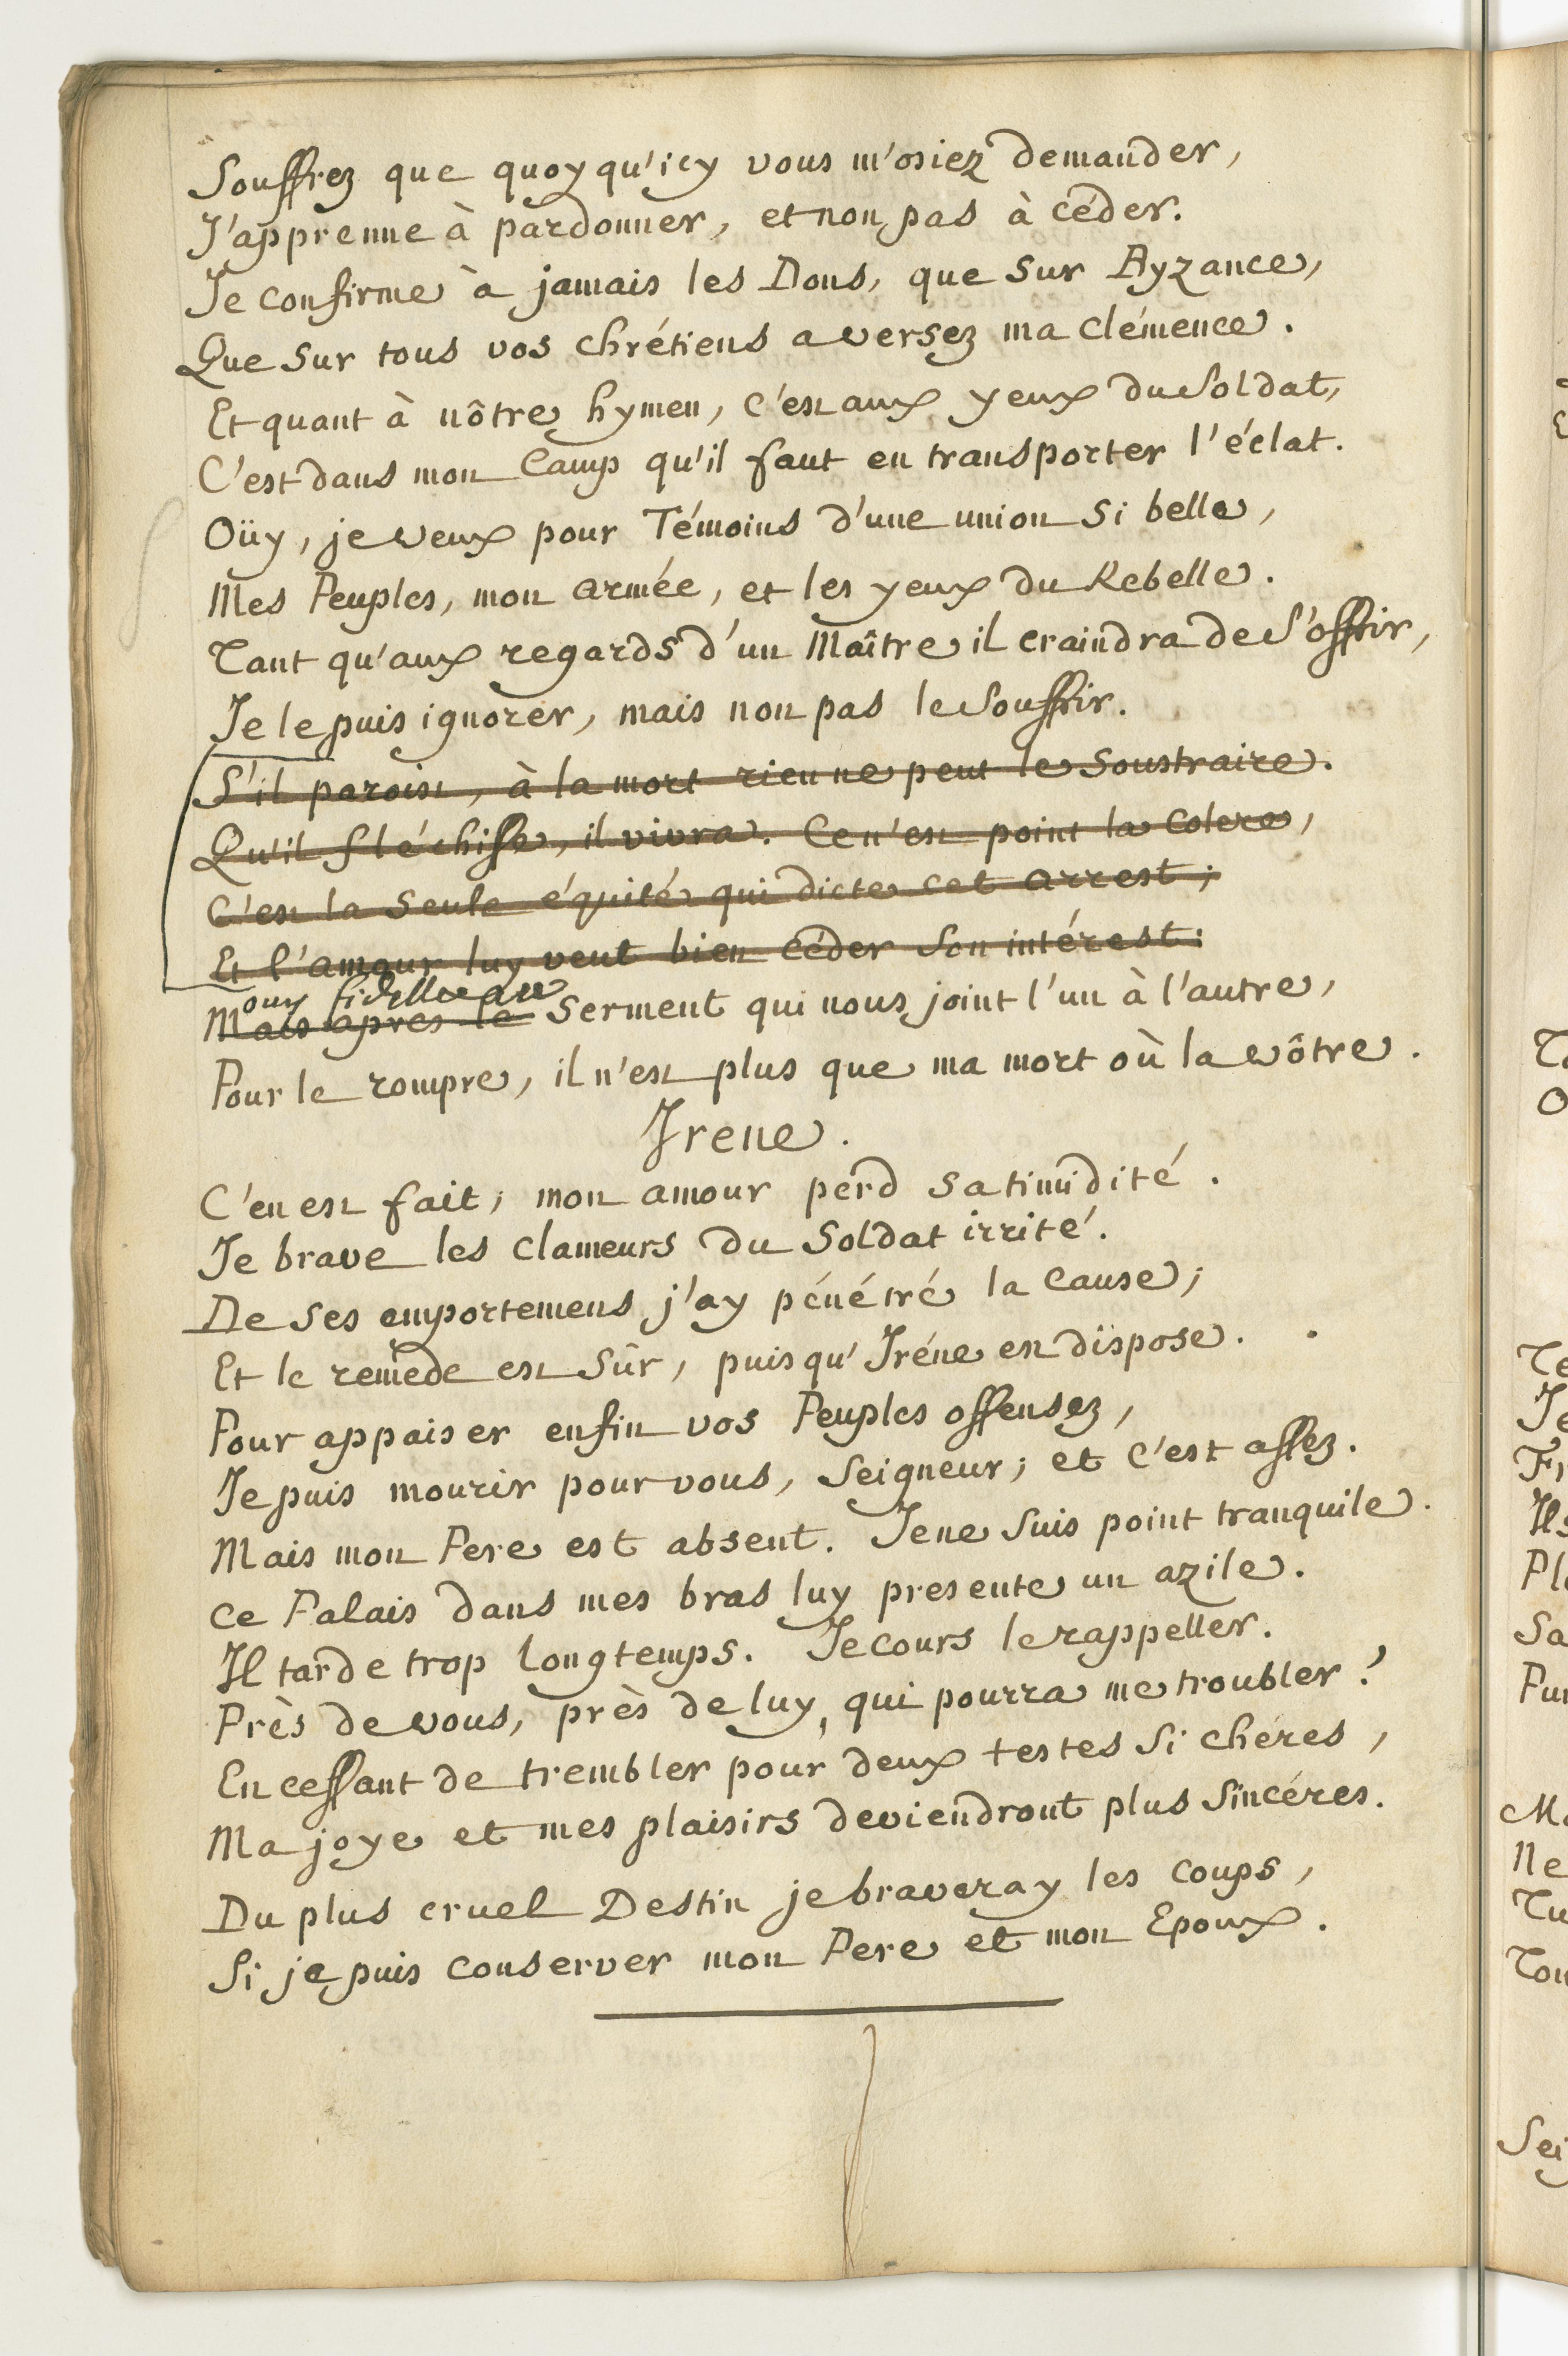 Souffrez que quoyqu'icy vous m'osiez demander,
J'apprenne à pardonner, et non pas à céder.
Je confirme à jamais les Dons, que sur Byzance,
Que sur tous vos chrétiens a versez ma clémence.
Et quant à nôtre hymen, c'est aux yeux du Soldat,
C'est dans mon Camp qu'il faut en transporter l'éclat.
Oüy, je veux pour Témoins d'une union si belle,
Mes Peuples, mon armée, et les yeux du Rebelle.
Tant qu'aux regards d'un Maître il craindra de s'offrir,
Je le puis ignorer, mais non pas le souffrir.
S'il paroist, à la mort rien ne peut le soustraire.
Qu'il fléchisse, il vivra. Ce n'est point la Colere,
C'est la seule équité qui dicte cet arrest;
Et l'amour luy veut bien céder son intérest:
ouy fidelle au
Mais apres le serment qui nous joint l'un à l'autre,
Pour le rompre, il n'est plus que ma mort où la vôtre.
Irene.
C'en est fait; mon amour perd sa timidité.
Je brave les clameurs du Soldat irrité.
De ses emportemens j'ay pénétré la cause;
Et le remede est sûr, puisqu'Iréne en dispose.
Pour appaiser enfin vos Peuples offensez,
Je puis mourir pour vous, Seigneur; et c'est assez.
Mais mon Pere est absent. Je ne suis point tranquile.
Ce Palais dans mes bras luy presente un azile.
Il tarde trop longtemps. Je cours le rappeller.
Près de vous, près de luy, qui pourra me troubler?
En cessant de trembler pour deux testes si chéres,
Ma joye et mes plaisirs deviendront plus sincéres.
Du plus cruel Destin je braveray les coups,
Si je puis conserver mon Pere et mon Epoux.